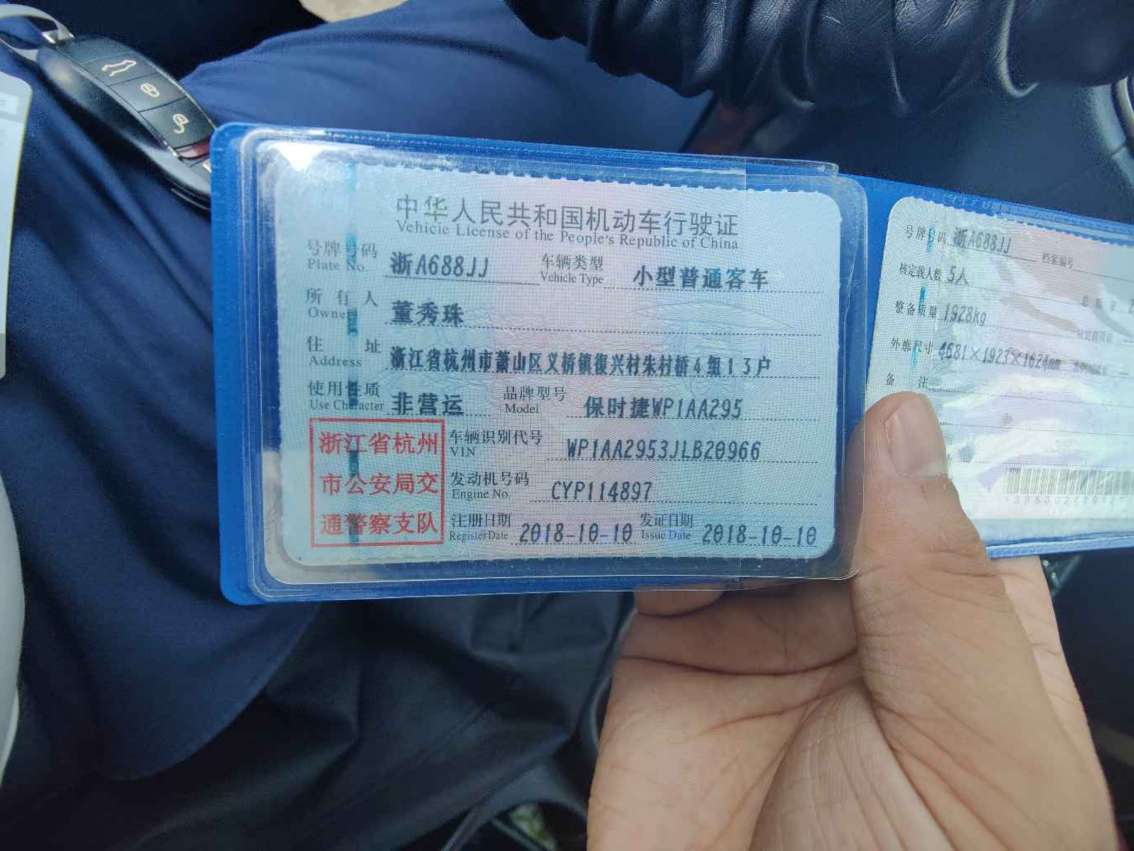 中华人民共和国机动车行驶证
Vehicle License of the People's Republic of China
号牌号码 浙A688JJ 车辆类型 小型普通客车
Plate No. Vehicle Type
所有人 董秀珠
Owner
住址 浙江省杭州市萧山区义桥镇復兴村朱村桥4组13户
Address
使用性质 非营运 品牌型号 保时捷WP1AA295
Use Character Model
浙江省杭州
市公安局交
通警察支队
车辆识别代号 WP1AA2953JLB20966
VIN
发动机号码 CYP114897
Engine No.
注册日期 2018-10-10 发证日期 2018-10-10
Register Date Issue Date
号牌号码 浙A688JJ 档案编号
核定载人数 5人
整备质量 1928kg
外廓尺寸 4681×1923×1624mm
备注